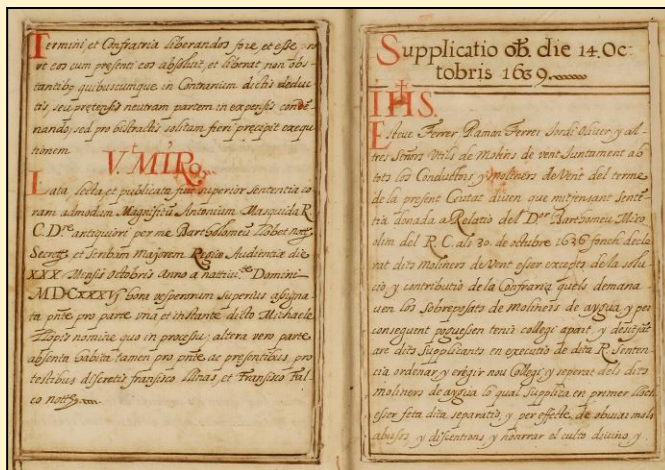 Termini, et Confratria liberandos fore, et esse pro
ut eos cum presenti eos absoluit, et liberat non obs-
tantibȝ quibuscumque in Contrarium dictis deduc-
tis, seu pretensis neutram partem in expensis conde-
nando, sed pro bistractis solitam fieri precipit exequ-
tionem
V. MIR
Lata lecta et publicata fuit superior sententia co-
ram admodum Magnificũ Antonium Masquida R.
C. Dre antiquiori per me Bartholomeũ Llobet notȝ
Secretȝ et Scribam Majorem Regiæ Audientiæ die
XXX Mensis Octobris Anno a nattiuite Domini
MDCXXXVI hora vesperorum superius assigna-
ta pnte pro parte una et instante dicto Michaele
Llopis nomine quo in processu; altera vero parte
absenta habita tamen pro pnte ac presentibus, pro
testibus discretis fransisco llinas, et Fransisco Fal-
co nottȝ
Supplicatio ob. die 14. Oc-
tobris 1639
IHS.
Esteue Ferrer Ramon Ferrer Jordi Oliuer y al-
tres Señors Utils de Molins de vent Juntament ab
tots los Conductors y moliners de Vent del terme
de la present Ciutat diuen que mitjensant Senten-
tia donada a Relatio del Dor Barthomeu Mico
olim del R. C. als 30. de octubre 1636 fonch decla-
rat dits Moliners de Vent esser exempts de la solu-
cio y contributio de la Confraria quels demana-
uen los Sobreposats de Moliners de aygua y per
conseguent poguessen tenir collegi apart, y desitjāt
are dits Supplicants en executio de dita R. Senten-
cia ordenar y erigir nou Collegi y seperat dels dits
moliners de aygua lo qual supplica en primer lloch
esser feta dita separatio, y per effecte de obuiar mols
abusos y discentions y honrrar el culto diuino y